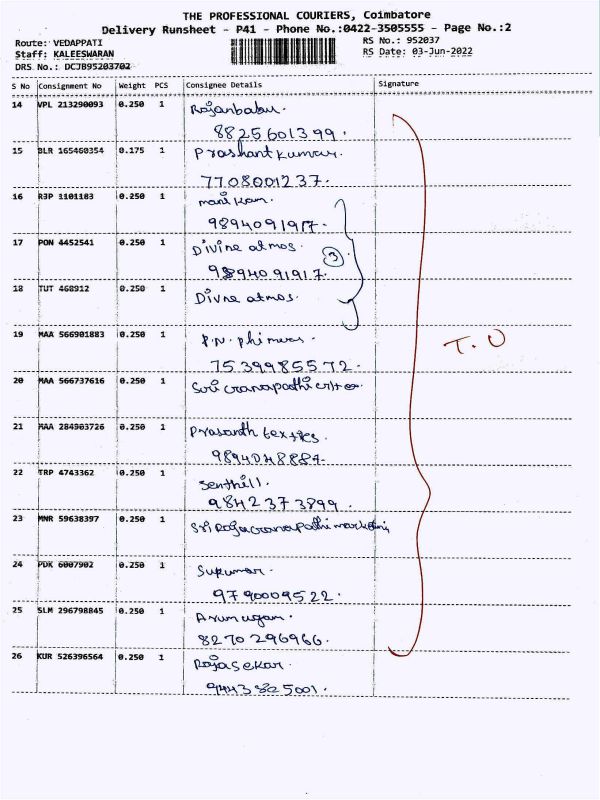 THE PROFESSIONAL COURIERS, Coimbatore
Delivery Runsheet - P41 - Phone No.:0422-3505555 - Page No.:2
Route: VEDAPPATI
RS No.: 952037
Staff: KALEESWARAN
RS Date: 03-Jun-2022
DRS No.: DCJB95203702
S No Consignment No Weight PCS Consignee Details Signature
14 VPL 213290093 0.250 1 Rajanbabu.
8825601399.
15 BLR 165460354 0.175 1 Prashant Kumar.
7708001237.
16 RJP 1101183 0.250 1 manikam.
9894091917.
17 PON 4452541 0.250 1 Divine atmos.
9894091917. 3
18 TUT 468912 0.250 1 Divne atmos.
19 MAA 566901883 0.250 1 P.N.
7539985572.
T.O
20 MAA 566737616 0.250 1 Sri
21 MAA 284903726 0.250 1 Prasanth
9894048887.
22 TRP 4743362 0.250 1 Senthill.
9842373899.
23 MNR 59638397 0.250 1 Sri Raja
24 PDK 6007902 0.250 1 Sukumar.
9790009522.
25 SLM 296798845 0.250 1 Arumugam.
8270296966.
26 KUR 526396564 0.250 1 Rajasekar.
9443825001.